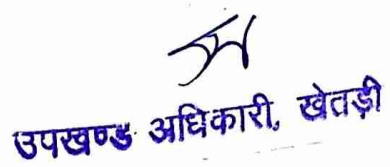 उपखण्ड अधिकारी, खेतड़ी